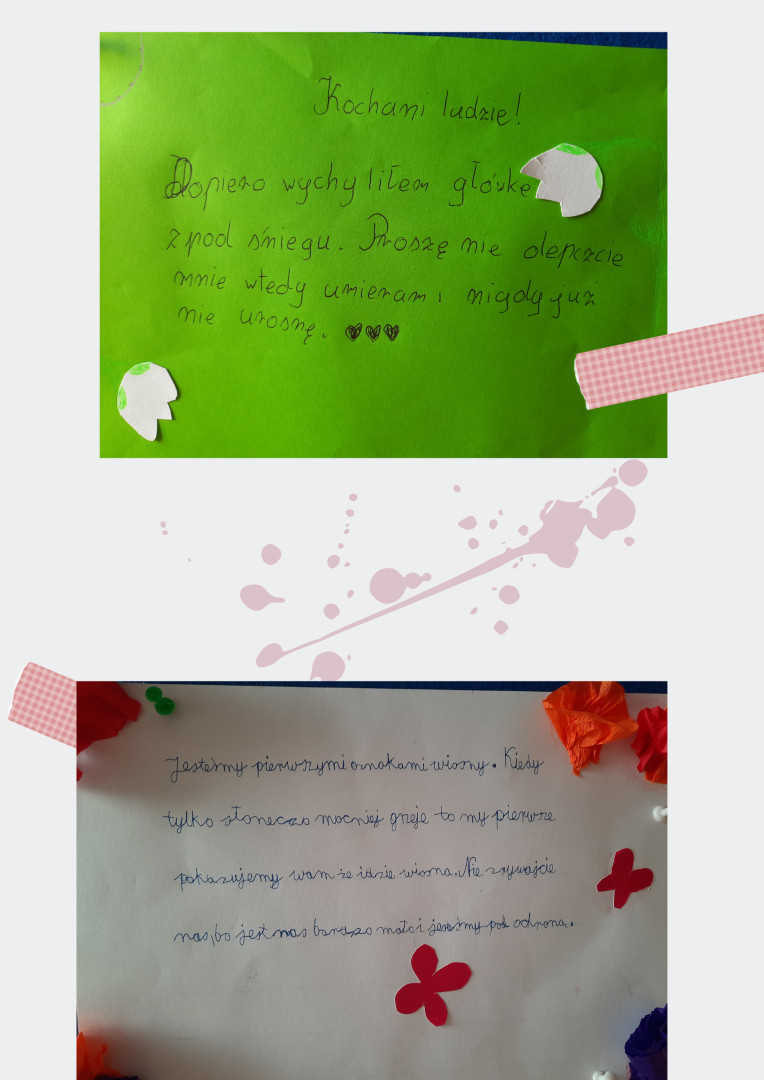 Kochani ludzię!
Dopiero wychyliłem główkę
z pod śniegu. Proszę nie depczcie
mnie wtedy umieram i nigdy już
nie urosnę.
Jesteśmy pierwszymi oznakami wiosny. Kiedy
tylko słoneczo mocniej grzeje to my pierwsze
pokazujemy wam że idzie wiosna. Nie zrywajcie
nas, bo jest nas bardzo mało i jesteśmy pod ochroną.